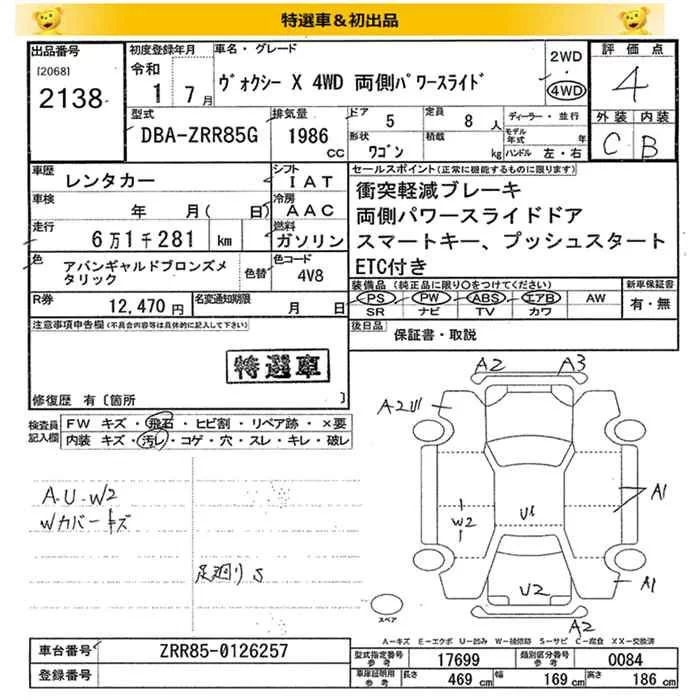 特選車＆初出品
出品番号
[2068]
2138
初度登録年月
令和
1 7月
車名・グレード
ヴォクシー X 4WD 両側パワースライド
2WD
4WD
評価点
4
外装 内装
C B
型式
DBA-ZRR85G
排気量
1986
CC
ドア
5
定員
8 人
形状
ワゴン
積載
kg
ディーラー・並行
モデル年式 年
ハンドル 左・右
車歴
レンタカー
シフト
IAT
車検
年 月( 日)
冷房
AAC
走行
6万1千281 km
燃料
ガソリン
色
アバンギャルドブロンズメ
タリック
色替
色コード
4V8
R券
12,470円
名変通知期限
月 日
セールスポイント(正常に機能するものに限ります)
衝突軽減ブレーキ
両側パワースライドドア
スマートキー、プッシュスタート
ETC付き
装備品 (純正品に限り○をつけてください)
新車保証書
PS PW ABS エアB AW
SR ナビ TV カワ
有・無
後日品
保証書・取説
注意事項申告欄(不具合内容等は具体的に記入して下さい)
特選車
修復歴 有〔箇所 〕
検査員
記入欄
FW キズ・飛石・ヒビ割・リペア跡・×要
内装 キズ・汚レ・コゲ・穴・スレ・キレ・破レ
A・U・W2
Wカバーキズ
足廻りS
A2 A3
A2
A1
W2
U1
A1
U2
A2
スペア
A-キズ E-エクボ U-凹み W-補修跡 S-サビ C-腐食 XX-交換済
車台番号
ZRR85-0126257
登録番号
型式指定番号
参考
17699
類別区分番号
参考
0084
車庫証明用
参考
長さ
469 cm
幅
169 cm
高さ
186 cm